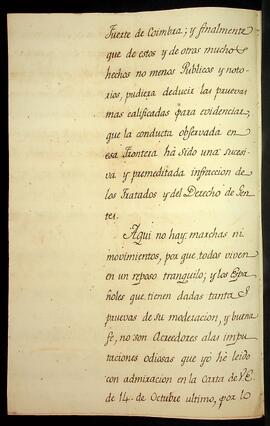 Fuerte de Coimbra; y finalmente
que de estos y de otros muchos
hechos no menos Publicos y noto-
rios, pudiera deducir las pruevas
mas calificadas para evidenciar,
que la conducta observada en
esa Frontera há sido una sucesi-
va y premeditada infraccion de
los Tratados y del Derecho de Gen-
tes.
Aqui no hay marchas ni
movimientos, por que todos viven
en un reposo tranquilo; y los Espa-
ñoles que tienen dadas tantas
pruevas de su moderacion, y buena
fe, no son Acreedores a las impu-
taciones odiosas que yó hé leido
con admiracion en la Carta de V.E.
de 14 de Octubre ultimo, por lo